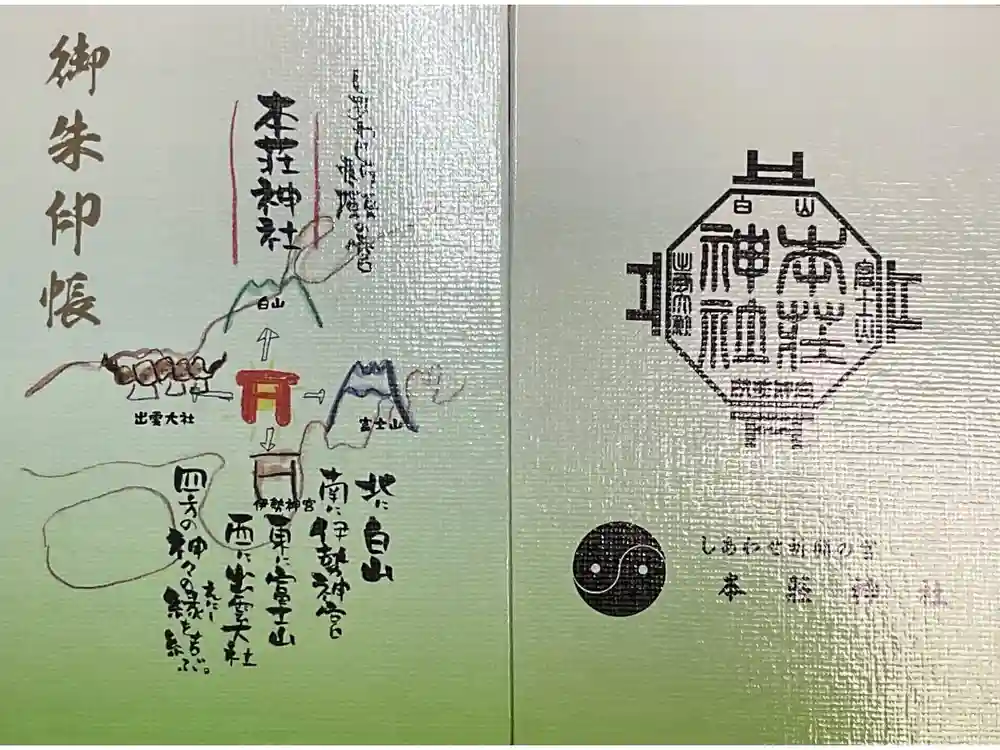 御朱印帳
本荘神社
白山
出雲大社
富士山
伊勢神宮
北に白山
南に伊勢神宮
東に富士山
西に出雲大社
四方の神々の縁を結ぶ。
えにし
白山
本荘
神社
富士山
出雲大社
伊勢神宮
しあわせ祈願の宮
本荘神社